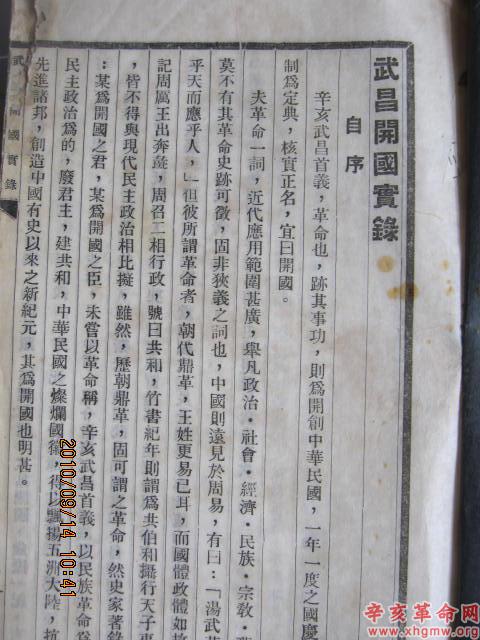 武昌開國實錄
自序
辛亥武昌首義，革命也，跡其事功，則爲開創中華民國，一年一度之國慶
制爲定典，核實正名，宜曰開國。
夫革命一詞，近代應用範圍甚廣，舉凡政治·社會·經濟·民族·宗敎·
莫不有其革命史跡可徵，固非狹義之詞也，中國則遠見於周易，有曰：「湯武革
乎天而應乎人，」但彼所謂革命者，朝代鼎革，王姓更易已耳，而國體政體如故
記周厲王出奔彘，周召二相行政，號曰共和，竹書紀年則謂爲共伯和攝行天子事
，皆不得與現代民主政治相比擬，雖然，歷朝鼎革，固可謂之革命，然史家著錄
：某爲開國之君，某爲開國之臣，未嘗以革命稱，辛亥武昌首義，以民族革命爲
民主政治爲的，廢君主，建共和，中華民國之燦爛國徽，得以飄揚五洲大陸，
先進諸邦，創造中國有史以來之新紀元，其爲開國也明甚。
武 開國實錄
2010/09/14 10:41
辛亥革命网
www.xhgmw.org